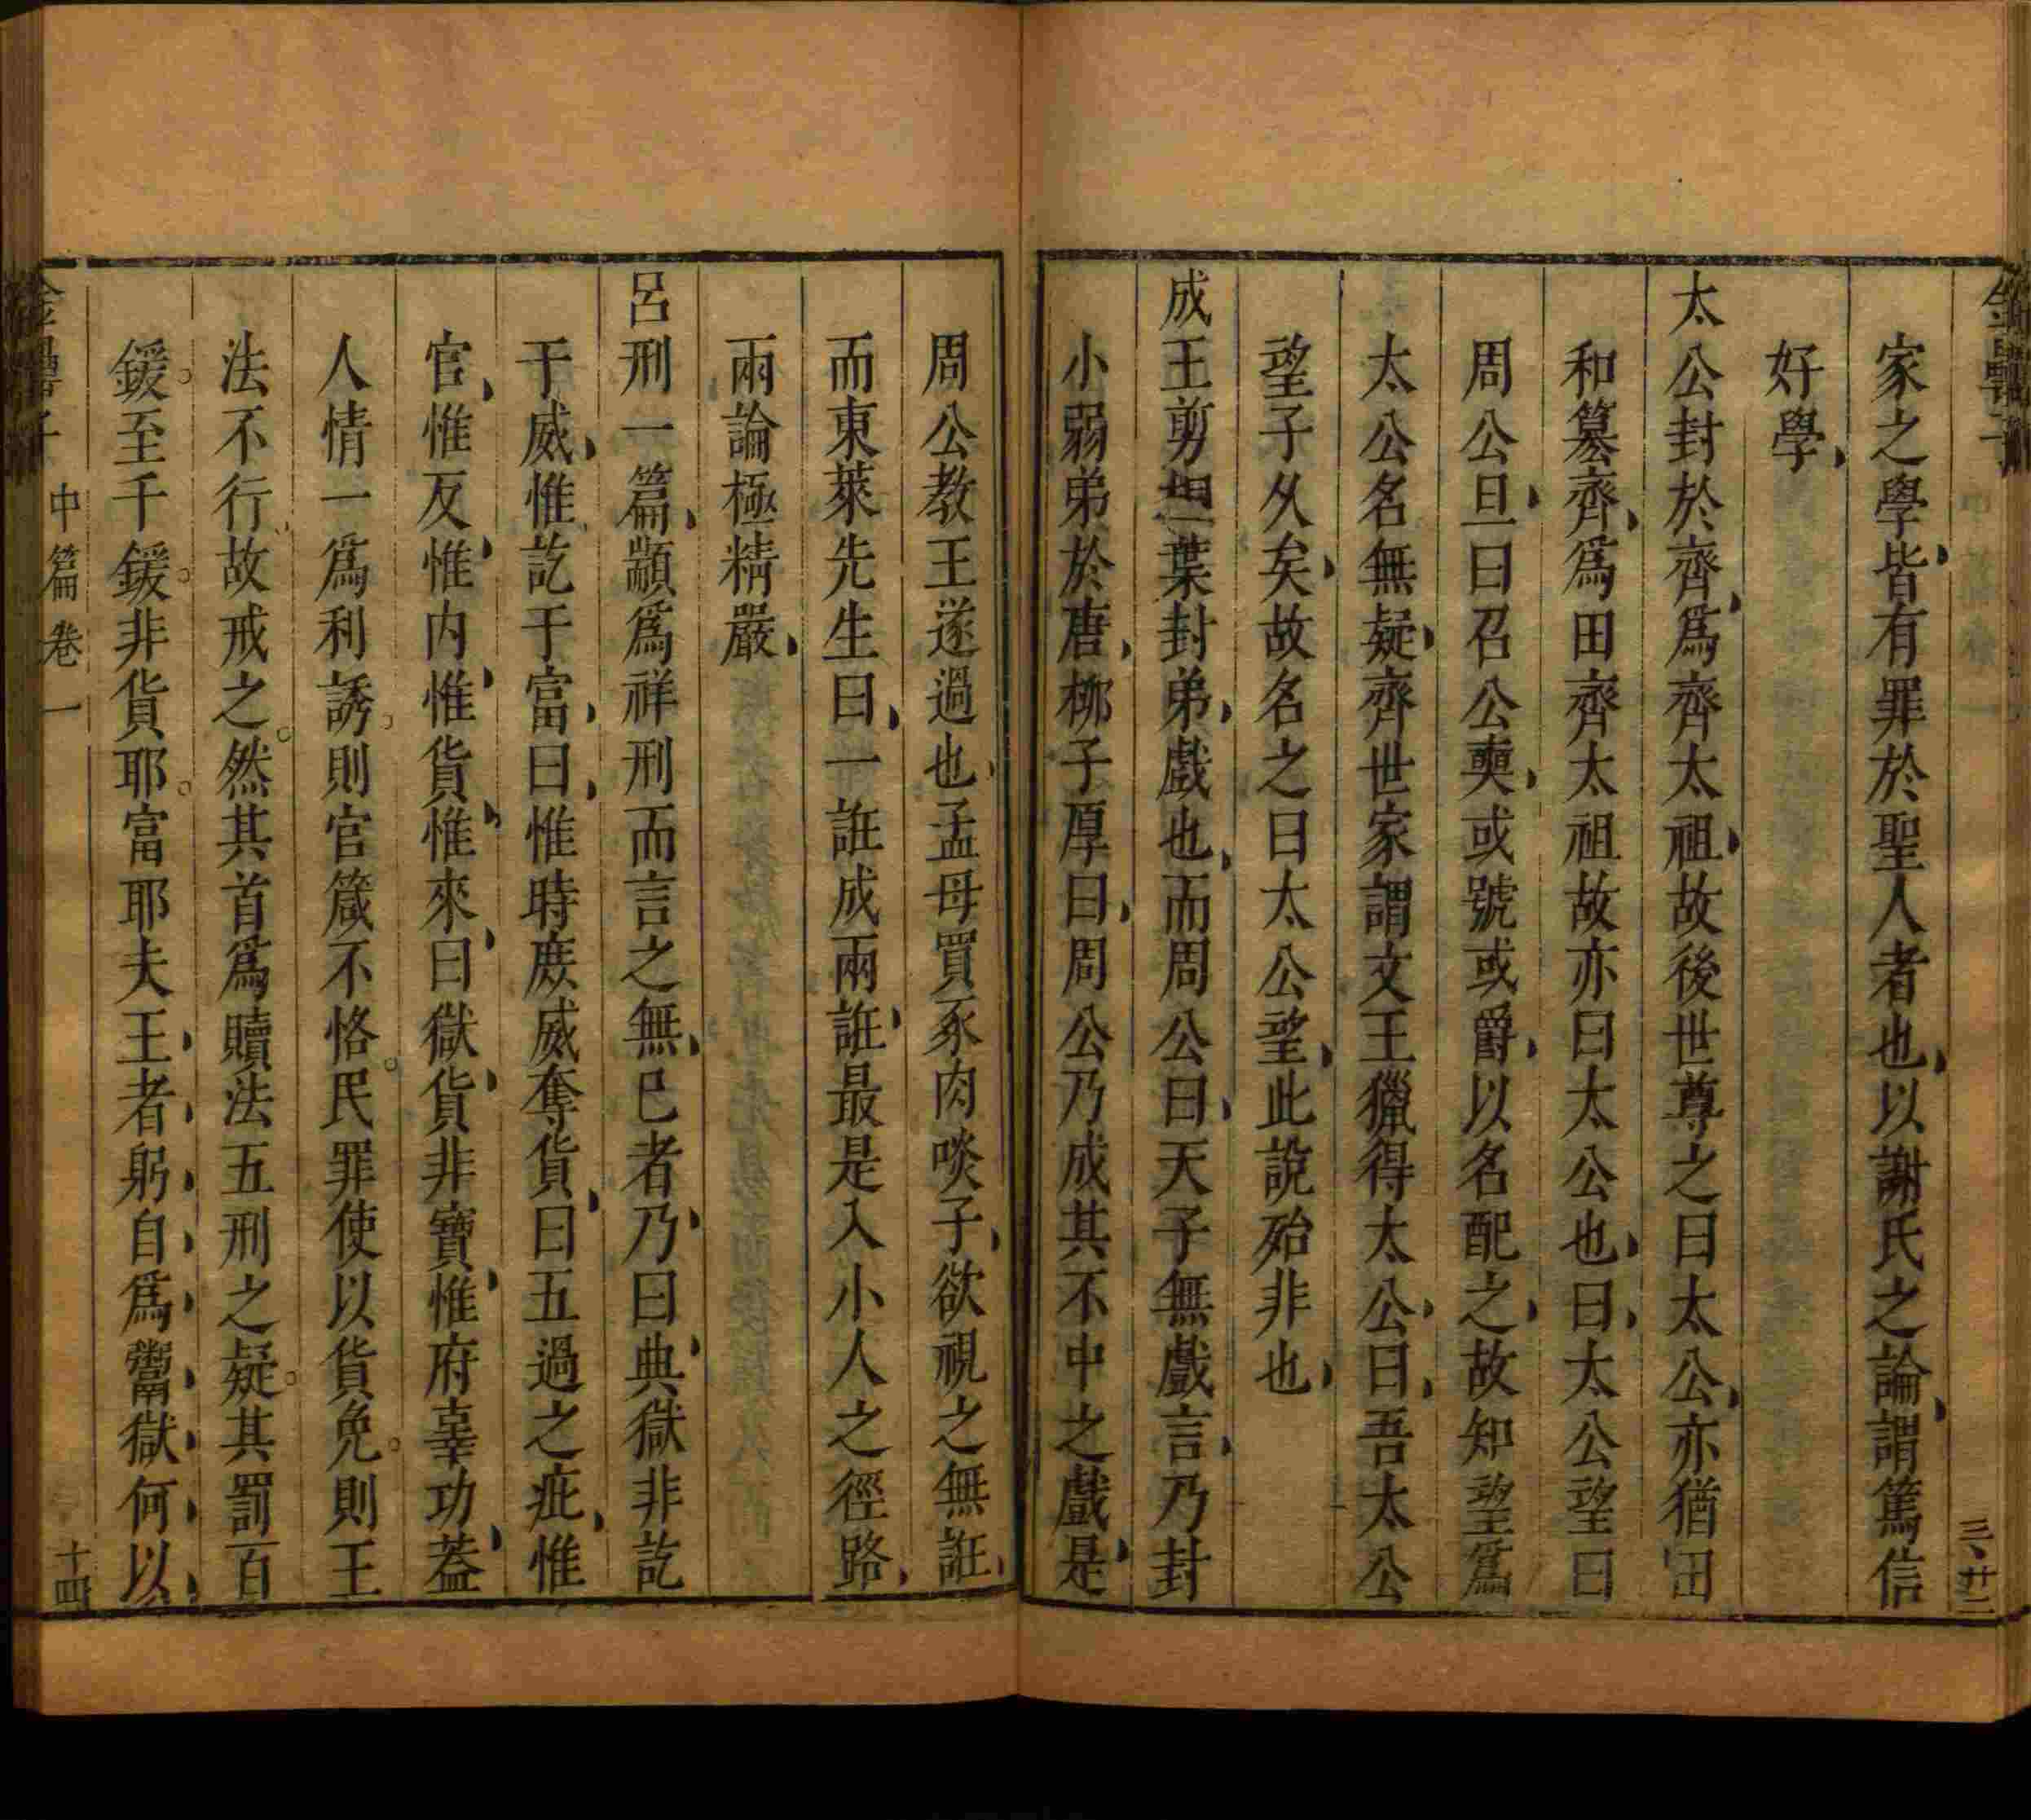 家之學皆有罪於聖人者也以謝氏之論謂篤信
好學
太公封於齊爲齊太祖故後世尊之曰太公亦猶田
和篡齊爲田齊太祖故亦曰太公也曰太公望曰
周公旦曰召公奭或號或爵以名配之故知望爲
太公名無疑齊世家謂文王獵得太公曰吾太公
望子久矣故名之曰太公望此說殆非也
成王剪桐葉封弟戲也而周公曰天子無戲言乃封
小弱弟於唐柳子厚曰周公乃成其不中之戲是
周公教王遂過也孟母買豕肉啖子欲視之無誑
而東萊先生曰一誑成兩誑最是入小人之徑路
兩論極精嚴
呂刑一篇顓爲祥刑而言之無已者乃曰典獄非訖
于威惟訖于富曰惟時庶威奪貨曰五過之疵惟
官惟反惟内惟貨惟來曰獄貨非寶惟府辜功葢
人情一爲利誘則官箴不恪民罪使以貨免則王
法不行故戒之然其首爲贖法五刑之疑其罰百
鍰至千鍰非貨耶富耶夫王者躬自爲鬻獄何以
中篇卷一
十四